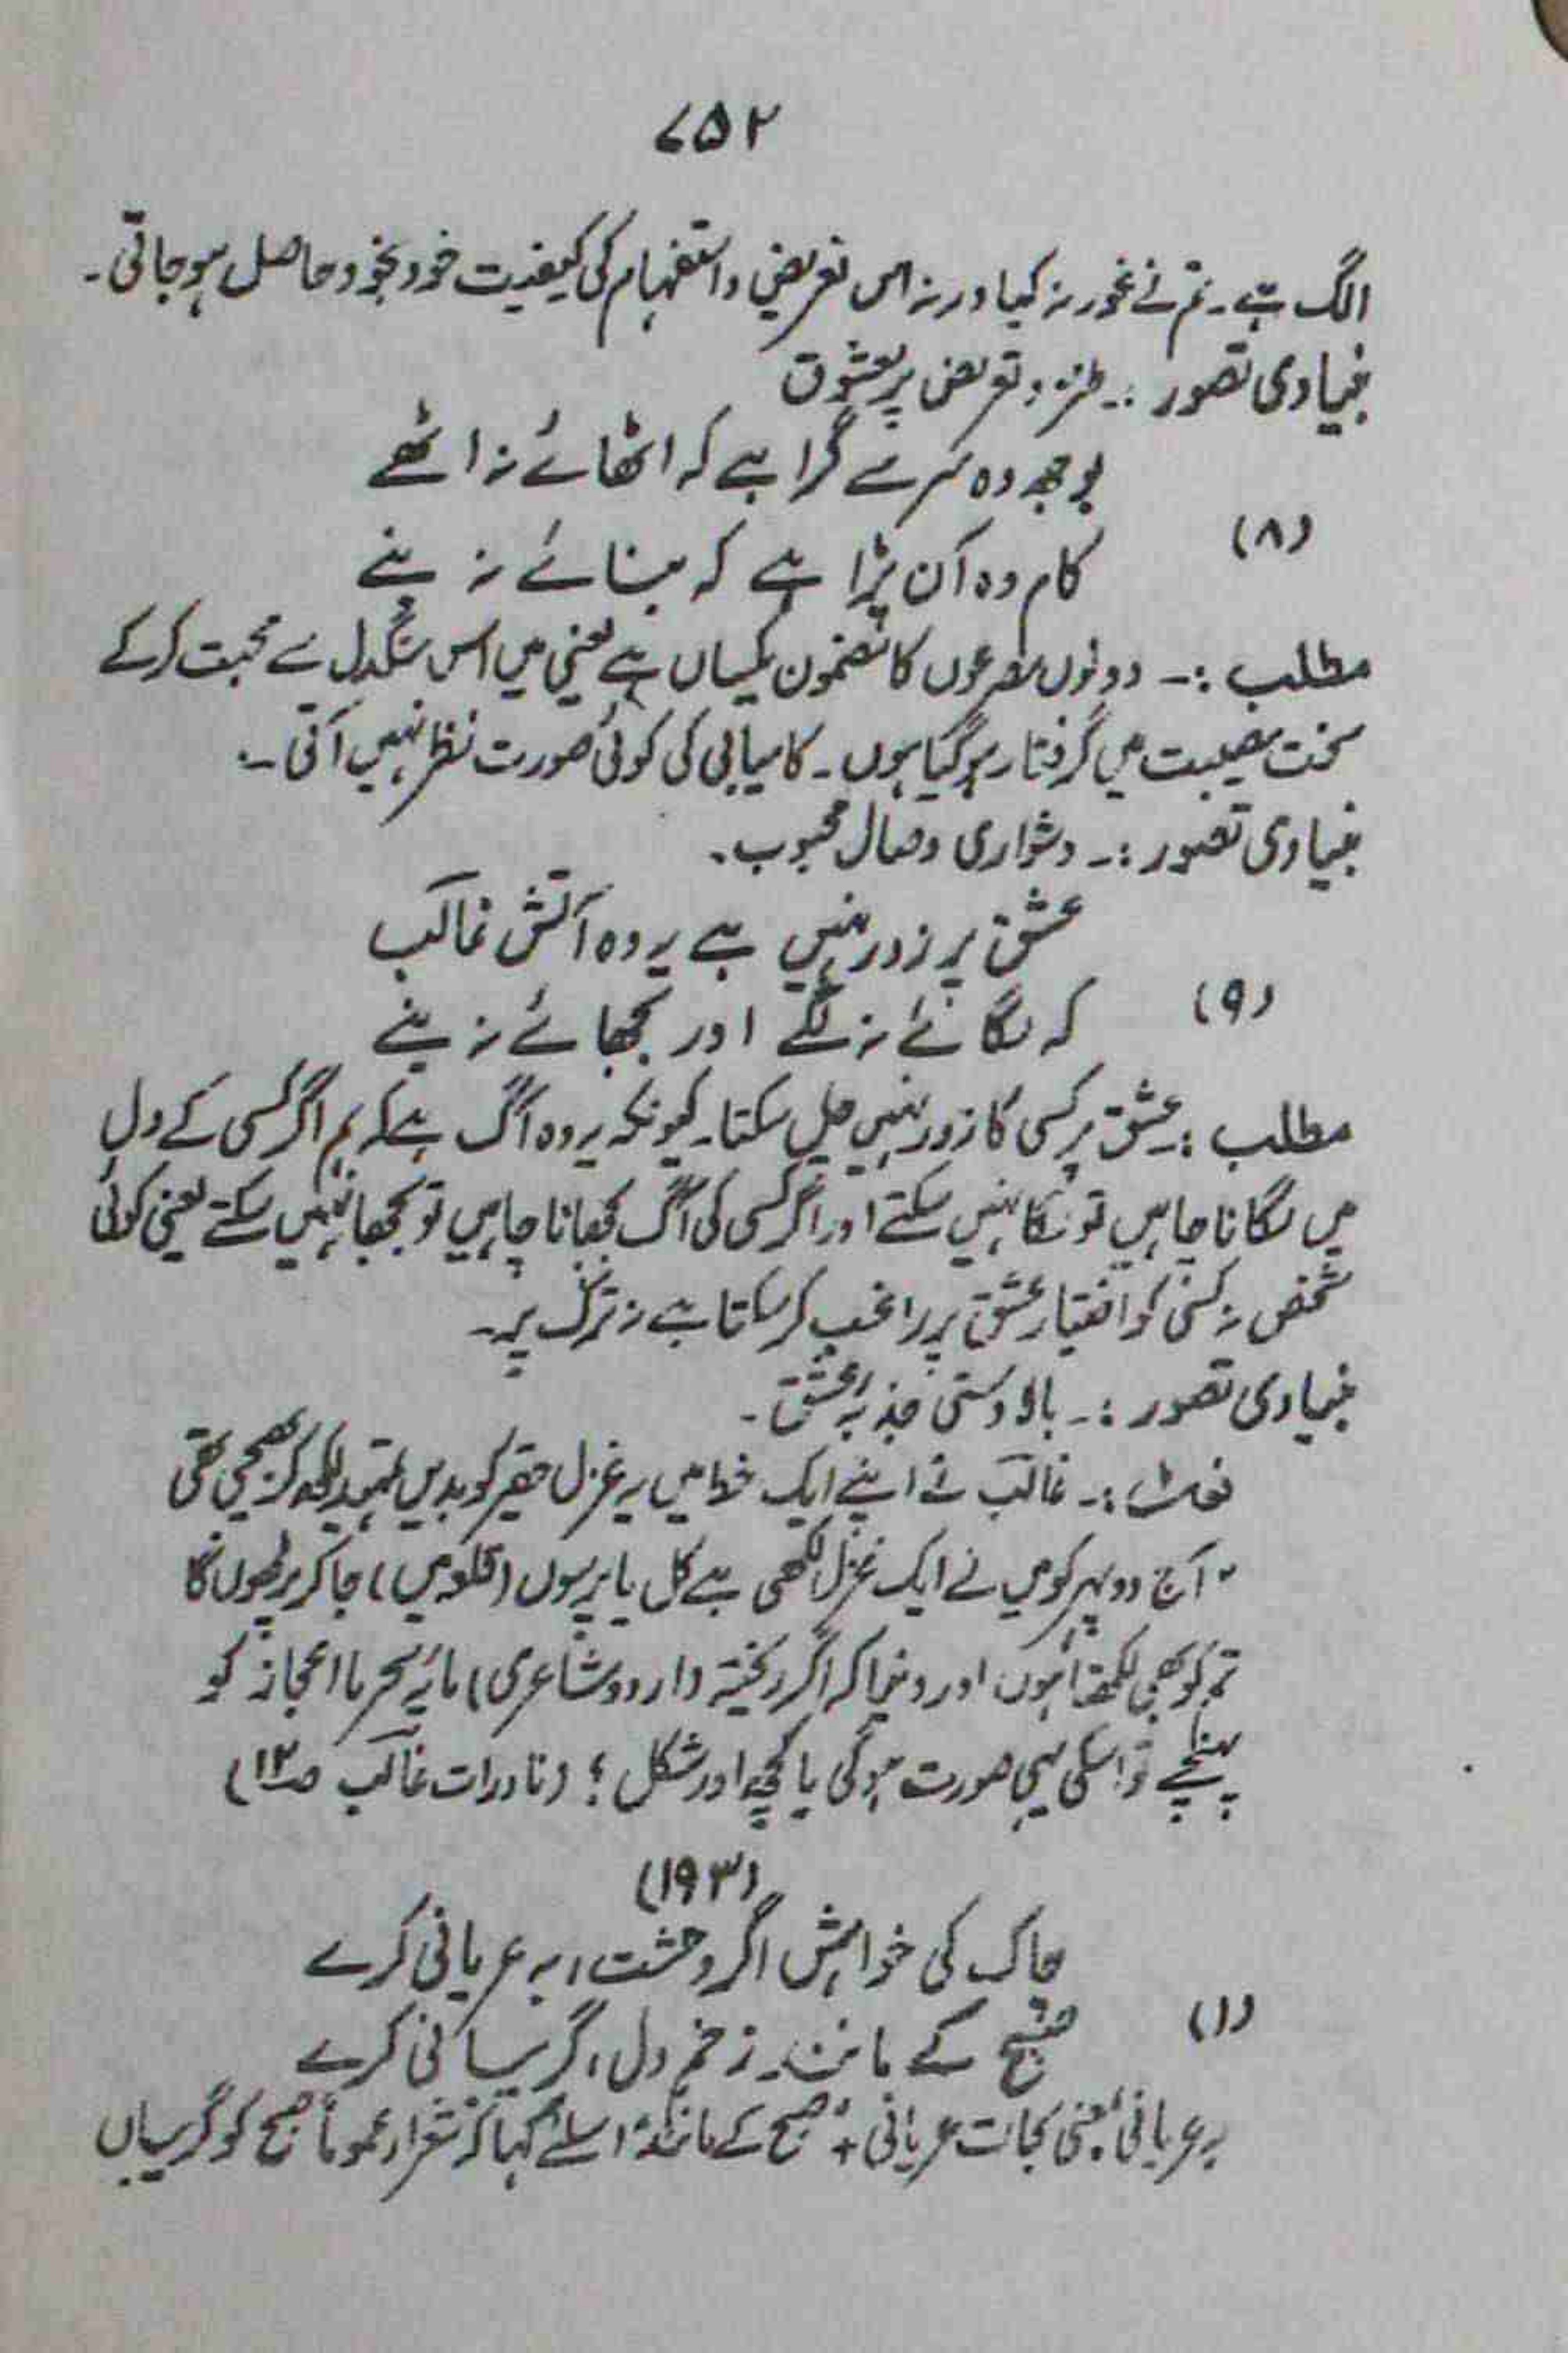 ۷۵۲
الگ ہے۔ تم نے غور نہ کیا ورنہ اس تعریضی و استفہام کی کیفیت خود بخود حاصل ہوجاتی۔
بنیادی تصور :۔ طنز و تعریض پر معشوق
بوجھ وہ سر سے گرا ہے کہ اٹھائے نہ اٹھے
(۸)
کام وہ آن پڑا ہے کہ بنائے نہ بنے
مطلب :۔ دونوں مصرعوں کا مضمون یکساں ہے یعنی میں اس سنگدل سے محبت کرکے
سخت مصیبت میں گرفتار ہوگیا ہوں۔ کامیابی کی کوئی صورت نظر نہیں آتی۔
بنیادی تصور :۔ دشواری وصال محبوب۔
عشق پر زور نہیں ہے یہ وہ آتش غالب
(۹)
کہ لگائے نہ لگے اور بجھائے نہ بنے
مطلب :۔ عشق پر کسی کا زور نہیں چل سکتا۔ کیونکہ یہ وہ آگ ہے کہ ہم اگر کسی کے دل
میں لگانا چاہیں تو لگا نہیں سکتے اور اگر کسی کی آگ بجھانا چاہیں تو بجھا نہیں سکتے یعنی کوئی
شخص نہ کسی کو اختیار عشق پر راغب کرسکتا ہے نہ ترک پر۔
بنیادی تصور :۔ بالا دستی جذبۂ عشق۔
نوٹ :۔ غالب نے اپنے ایک خط میں یہ غزل حقیر کو بدیں تمہید لکھ کر بھیجی تھی
"آج دوپہر کو میں نے ایک غزل لکھی ہے کل یا پرسوں (قلعہ میں) جا کر پڑھوں گا
تم کو بھی لکھتا ہوں اور دیکھنا کہ اگر ریختہ (اردو شاعری) پایۂ سحر یا اعجاز کو
پہنچے تو اسکی یہی صورت ہوگی یا کچھ اور شکل ؟ (نادرات غالب صـ۱۲)
(۱۹۳)
چاک کی خواہش اگر وحشت، بہ عریانی کرے
(۱)
صبح کے مانند۔ زخم دل، گریبانی کرے
بہ عریانی: بمعنی بحالت عریانی + "صبح کے مانند" اسلئے کہا کہ شعراء عموماً صبح کو گریباں